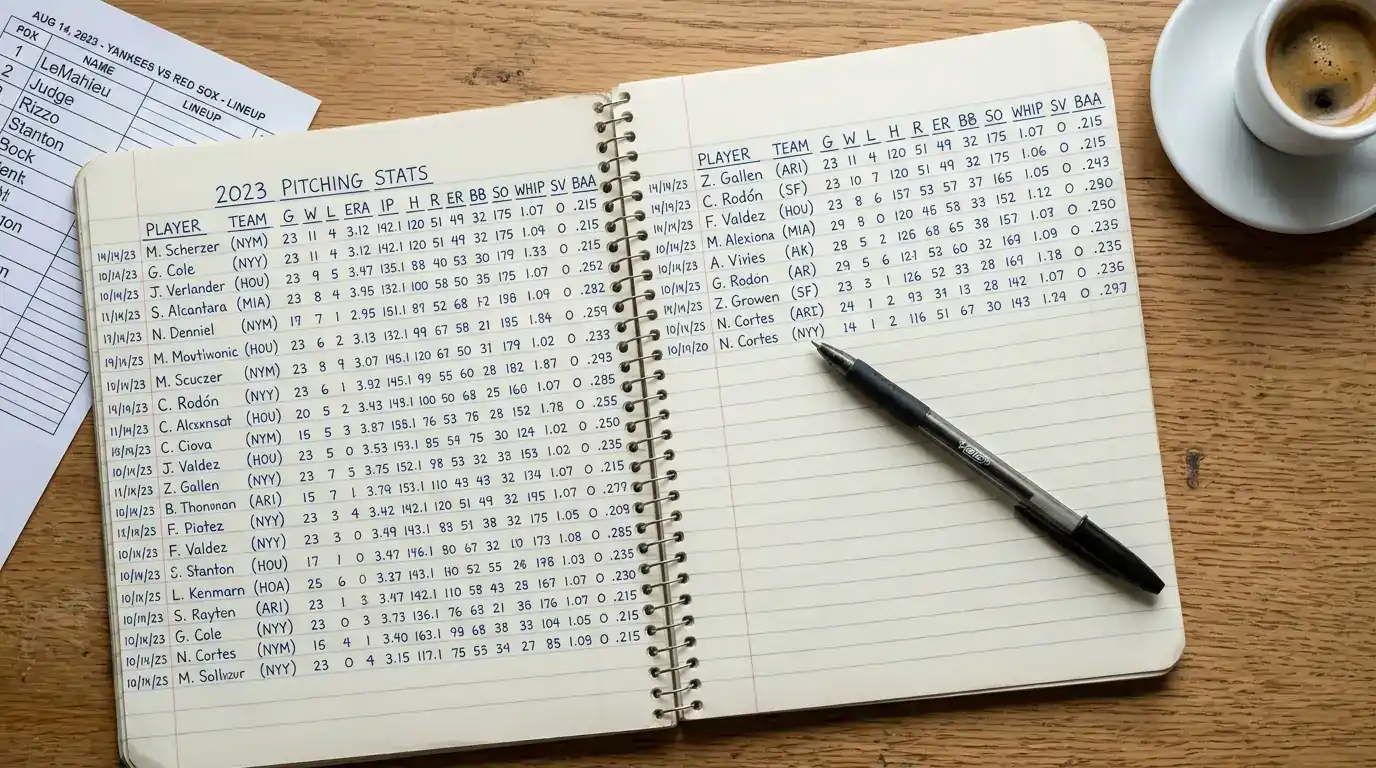 AUG 14, 2023 - YANKEES VS RED SOX - LINEUP
POX NAME LINEUP
1 LeMahieu
2 Judge
Rizzo
Stanton
Bock
2023 PITCHING STATS
PLAYER TEAM G W L ERA IP H R ER BB SO WHIP SV BAA
14/14/23 M. Scherzer (NYM) 23 11 4 3.12 142.1 120 51 49 32 175 1.07 0 .215
10/14/23 G. Cole (NYY) 23 11 4 3.12 142.1 120 51 49 32 175 1.04 0 .215
10/14/23 J. Verlander (HOU) 23 9 5 3.47 135.1 88 40 53 30 179 1.33 0 .215
11/14/23 S. Alcantara (MIA) 23 8 4 3.95 132.1 100 58 50 35 175 1.07 0 .252
N. Denniel (NYM) 17 7 1 2.95 151.1 87 52 68 198 1.09 0 .282
19/14/23 M. Movtiwonic (HOU) 23 6 2 3.13 132.1 99 67 58 21 185 1.84 0 .259
10/14/23 M. Scuczer (NYM) 23 8 9 3.07 145.1 120 67 50 31 179 1.02 0 .233
14/19/23 C. Rodón (NYY) 23 6 1 3.92 145.1 99 55 60 28 182 1.87 0 .293
11/14/23 C. Alcxxnsat (HOU) 20 5 2 3.43 143.1 100 50 68 25 160 1.07 0 .285
C. Ciova (NYM) 15 5 3 3.87 155.1 76 53 76 28 152 1.78 0 .255
10/14/23 J. Valdez (HOU) 23 5 0 3.53 153.1 85 54 75 30 124 1.02 0 .250
Z. Gallen (NYY) 23 7 5 3.75 152.1 98 53 32 33 153 1.02 0 .235
10/14/23 B. Thonunan (ARI) 15 7 1 3.79 153.1 110 43 43 32 134 1.07 0 .215
F. Piotez (NYY) 23 3 4 3.42 142.1 120 51 49 32 195 1.07 0 .279
F. Valdez (NYY) 23 3 0 3.49 143.1 83 51 38 32 175 1.05 0 .209
10/14/23 S. Stanton (HOU) 17 1 0 3.47 146.1 80 67 32 173 1.08 0 .285
L. Kenmarn (HOA) 25 6 0 3.37 143.1 52 55 26 178 1.03 0 .235
S. Rayten (ARI) 23 1 3 3.47 142.1 110 58 43 28 167 1.07 0 .230
G. Cole (NYY) 23 0 3 3.73 136.1 76 63 21 36 176 1.07 0 .215
N. Cortes (NYM) 15 4 1 3.40 163.1 99 68 38 33 104 1.05 0 .215
M. Sollvzur (NYY) 23 0 4 3.15 117.1 75 55 34 27 85 1.09 0 .215
PLAYER TEAM G W L H R ER BB SO WHIP SV BAA
14/14/23 Z. Gallen (ARI) 23 11 4 120 51 49 32 175 1.07 0 .215
14/19/23 C. Rodón (SF) 23 10 7 120 51 49 32 175 1.06 0 .215
F. Valdez (HOU) 23 8 6 157 53 57 37 165 1.05 0 .243
10/14/23 M. Alexiona (MIA) 29 8 0 120 45 58 33 152 1.12 0 .290
A. Vivies (HK) 28 5 2 126 68 65 38 157 1.03 0 .250
G. Rodón (AR) 29 5 6 53 60 32 169 1.09 0 .235
Z. Growen (SF) 23 3 1 126 52 33 28 169 1.78 0 .235
N. Cortes (ARI) 24 1 2 93 13 28 142 1.07 0 .236
10/19/20 N. Cortes (NYY) 14 1 2 116 51 67 30 143 1.24 0 .297